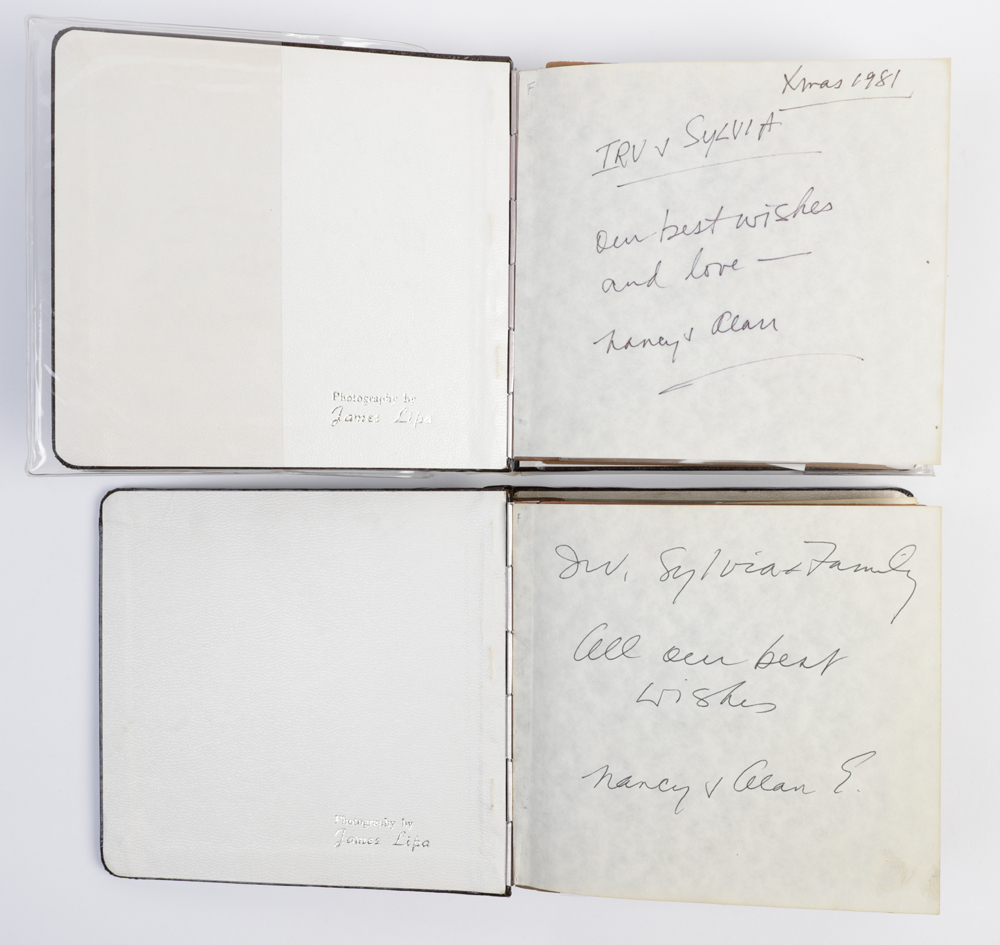 Photographs by
James Lipa
Xmas 1981
IRV & SYLVIA
our best wishes
and love —
Nancy & Alan
Photography by
James Lipa
Irv, Sylvia & Family
All our best
wishes
Nancy & Alan E.